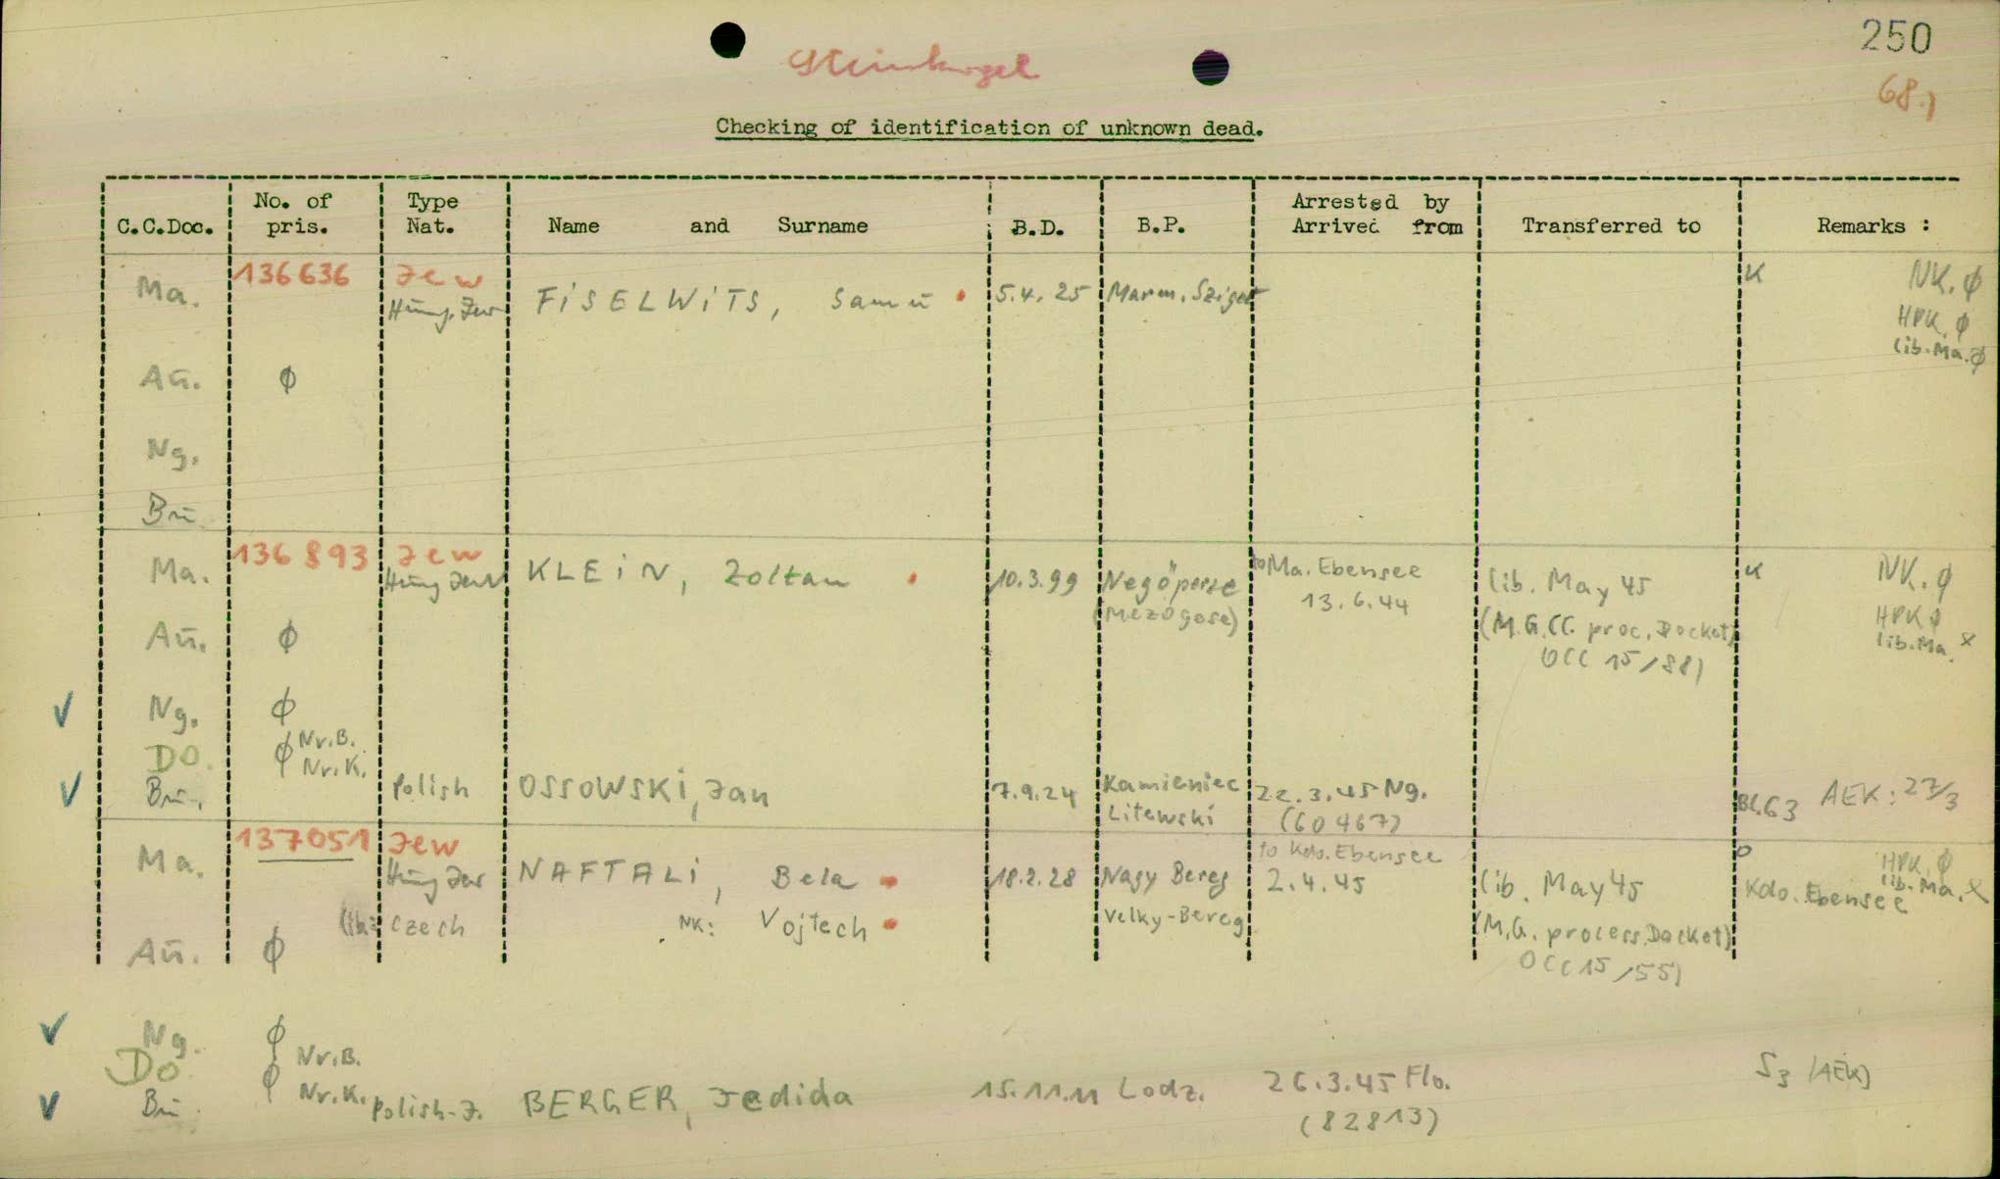 250
Steinkogel
68.)
Checking of identification of unknown dead.
C.C.Doc. No. of pris. Type Nat. Name and Surname B.D. B.P. Arrested by Arrived from Transferred to Remarks :
Ma. 136636 Jew Hung. Jew FISELWITS, Samu 5.4.25 Marm. Sziget K NK. ϕ
HPK. ϕ
lib. Ma. ϕ
Au. ϕ
Ng.
Bu.
Ma. 136893 Jew Hung Jew KLEIN, Zoltan 10.3.99 Negöperse to Ma. Ebensee lib. May 45 K NK. ϕ
(Mezögase) 13.6.44 (M.G.CC. proc. Docket HPK ϕ
Au. ϕ OCC 15/88) lib. Ma. x
√ Ng. ϕ
DO. ϕ Nr.B.
Nr.K.
√ Bu. Polish OSSOWSKI, Jan 7.9.24 Kamieniec 22.3.45 Ng. Bl.63 AEK: 27/3
Litewski (60467)
Ma. 137051 Jew to Kdo. Ebensee HPK. ϕ
Hung Jew NAFTALI, Bela 18.2.28 Nagy Bereg 2.4.45 lib. May 45 Kdo. Ebensee lib. Ma. x
lib: Czech NK: Vojtech Velky-Bereg (M.G. process. Docket)
Au. ϕ OCC 15/55)
√ Ng. ϕ
Do ϕ Nr.B.
Nr.K.
√ Bu. Polish-J. BERGER, Jedida 15.11.11 Lodz. 26.3.45 Flo. S3 (AEK)
(82813)